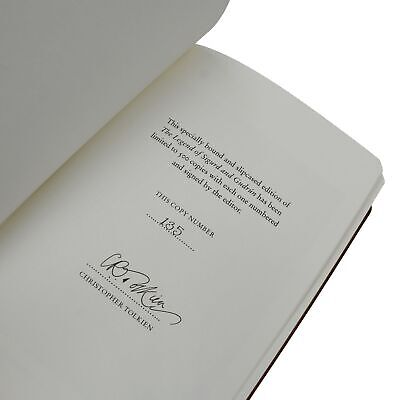 This specially bound and slipcased edition of
The Legend of Sigurd and Gudrún has been
limited to 500 copies with each one numbered
and signed by the editor.
THIS COPY NUMBER
135
CR Tolkien
CHRISTOPHER TOLKIEN